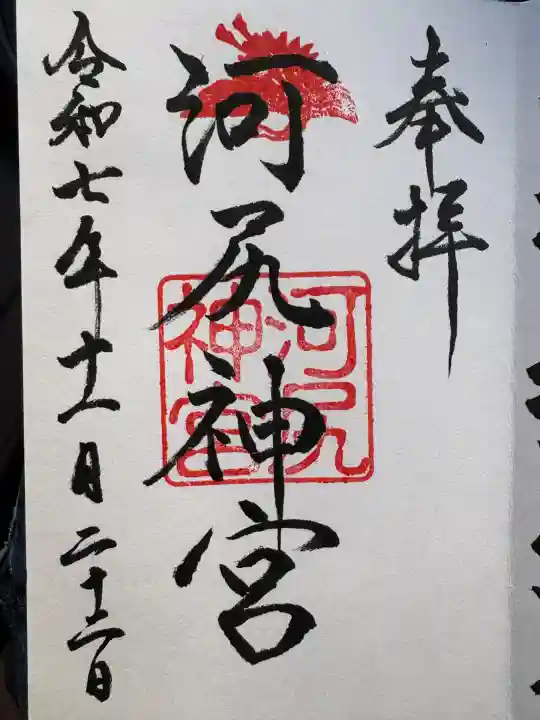 奉拝
河尻神宮
河尻神宮
令和七年十一月二十二日